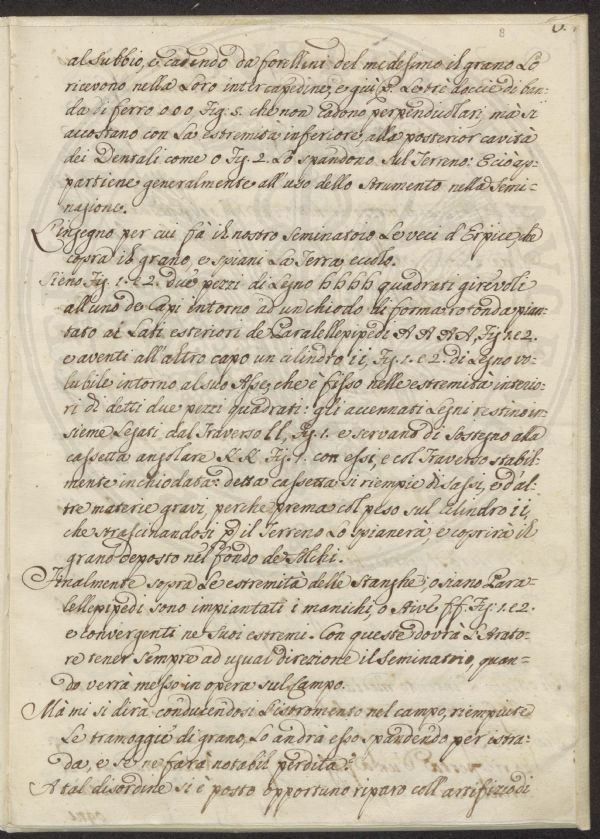 8
6.
al Subbio, e cadendo da forellini del medesimo il grano Lo
ricevono nella Loro intercapedine, e qui p. Le trè doccie di ban-
da di ferro o o o, Fig. 5. che non cadono perpendicolari, mà si
accostano con La estremità inferiore, alla posterior cavità
dei Dentali come o Fig. 2. Lo spandono sul Terreno: E ciò ap-
partiene generalmente all'uso dello Strumento nella Semi-
nagione.
L'ingegno per cui fà il nostro Seminatoio Le veci d'Erpice, che
copra il grano, e spiani La Terra eccolo.
Sieno Fig. 1. e 2. due pezzi di Legno hhhh quadrati girevoli
all'uno de Capi intorno ad un chiodo di forma rotonda pian-
tato ai Lati esteriori de Paralellepipedi A A A A, Fig. 1. e 2.
e aventi all'altro capo un cilindro i i, Fig. 1. e 2. di Legno vo-
lubile intorno al suo Asse, che è fisso nelle estremità interio-
ri di detti due pezzi quadrati: gli accennati Legni restino in-
sieme Legati dal Traverso ll, Fig. 1. e servano di Sostegno alla
cassetta angolare K K Fig. 1. con essi, e col Traverso stabil-
mente inchiodata: detta cassetta si riempie di Sassi, e d'al-
tre materie gravi, perche prema col peso sul cilindro i i,
che strascinandosi p il Terreno Lo spianerà, e coprirà il
grano deposto nel fondo de Solchi.
Finalmente sopra Le estremità delle Stanghe, o siano Para-
lellepipedi sono impiantati i manichi, o Stive ff. Fig. 1. e 2.
e convergenti ne suoi estremi. Con queste dovrà L'Arato-
re tener sempre ad ugual direzione il Seminatoio, quan-
do verrà messo in opera sul Campo.
Mà mi si dirà conducendosi L'istromento nel campo, riempiute
Le tramoggie di grano, Lo andrà esso spandendo per istra-
da, e se ne farà notabil perdita?
A tal disordine si è posto opportuno riparo coll'artifizio di